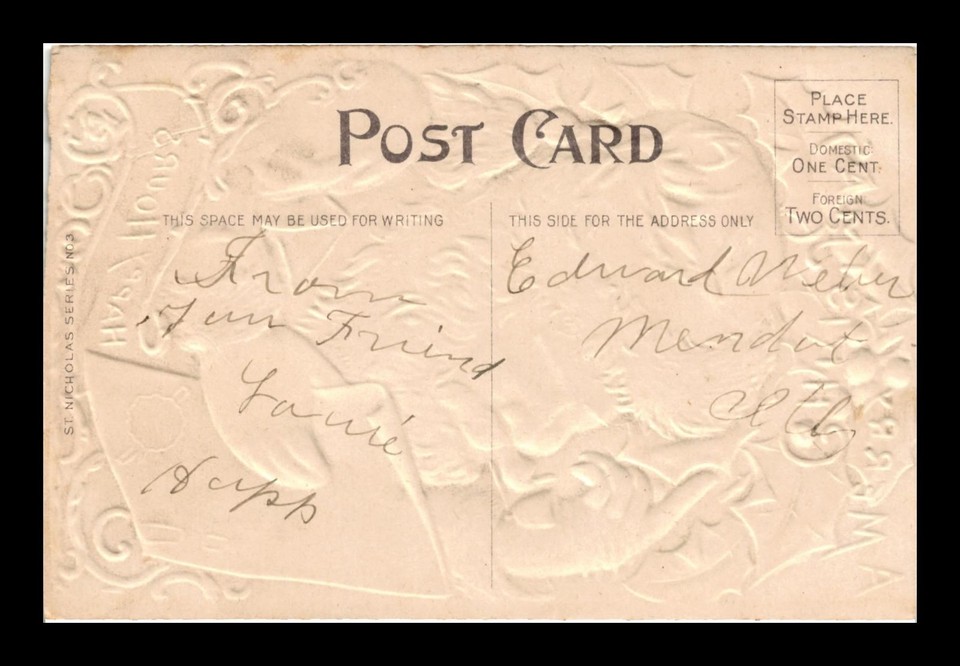 POST CARD
PLACE
STAMP HERE.
DOMESTIC
ONE CENT.
FOREIGN
TWO CENTS.
THIS SPACE MAY BE USED FOR WRITING
THIS SIDE FOR THE ADDRESS ONLY
ST. NICHOLAS SERIES NO 3
From
Friend
Happ
Edward Weber
Mendota
Ills
HAPPY HOURS
A MERRY